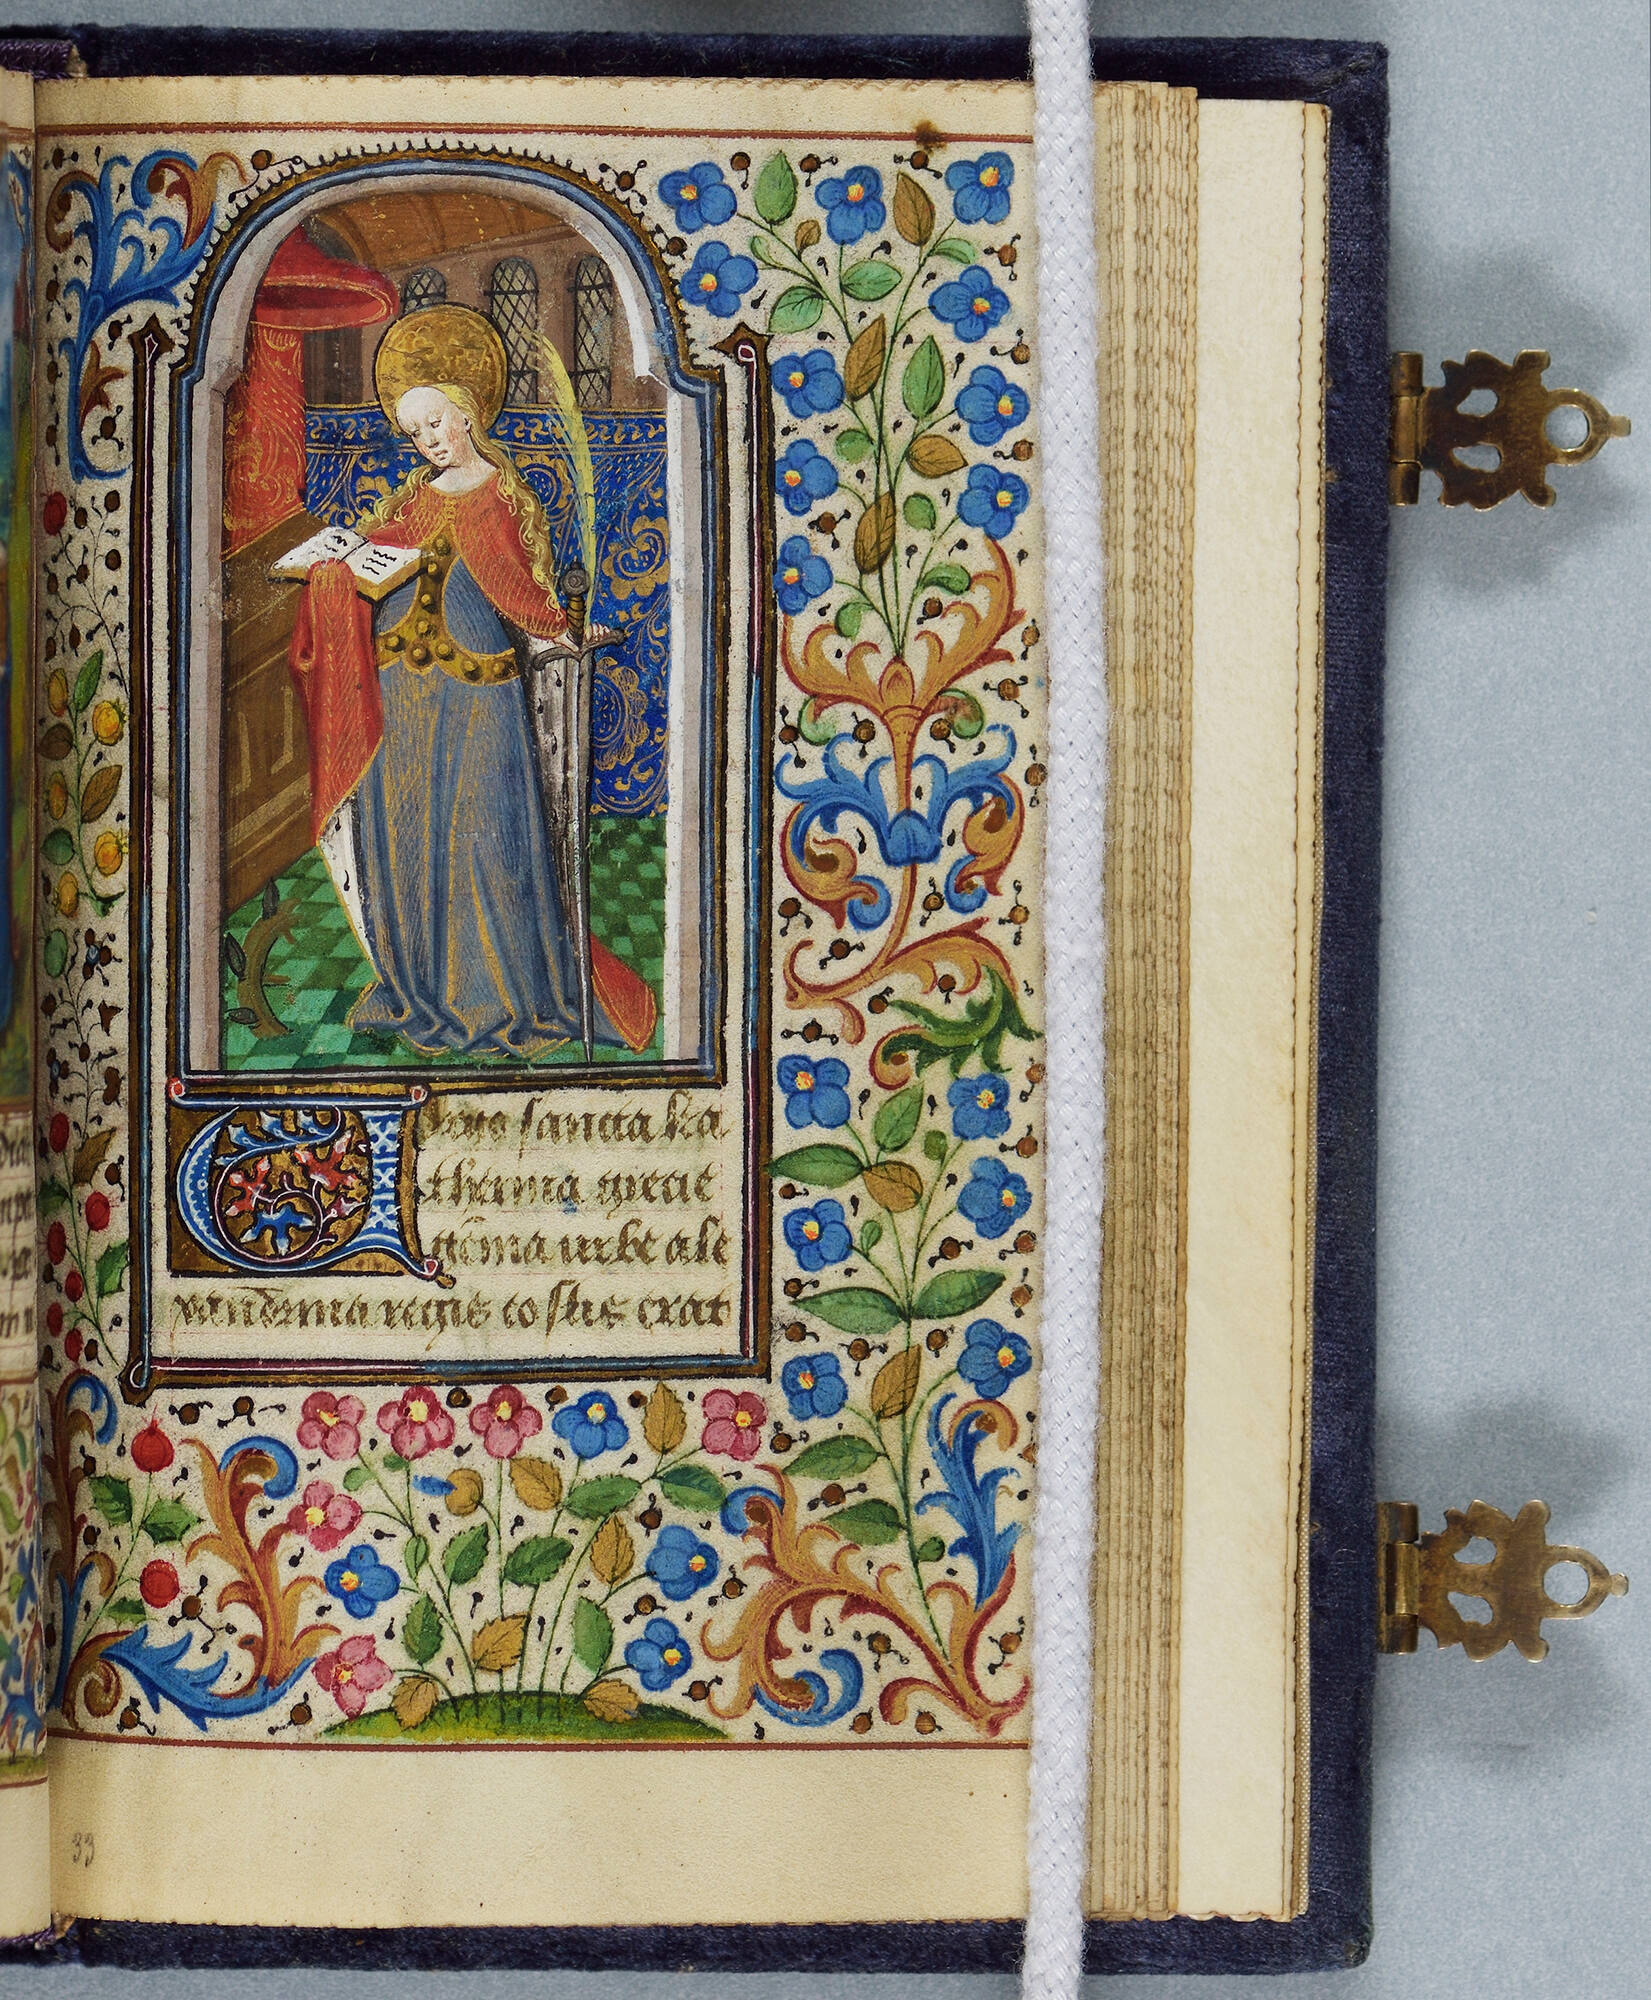 Virgo sancta ka
therina grecie
gēma urbe ale
xandrina regis costis erat
33